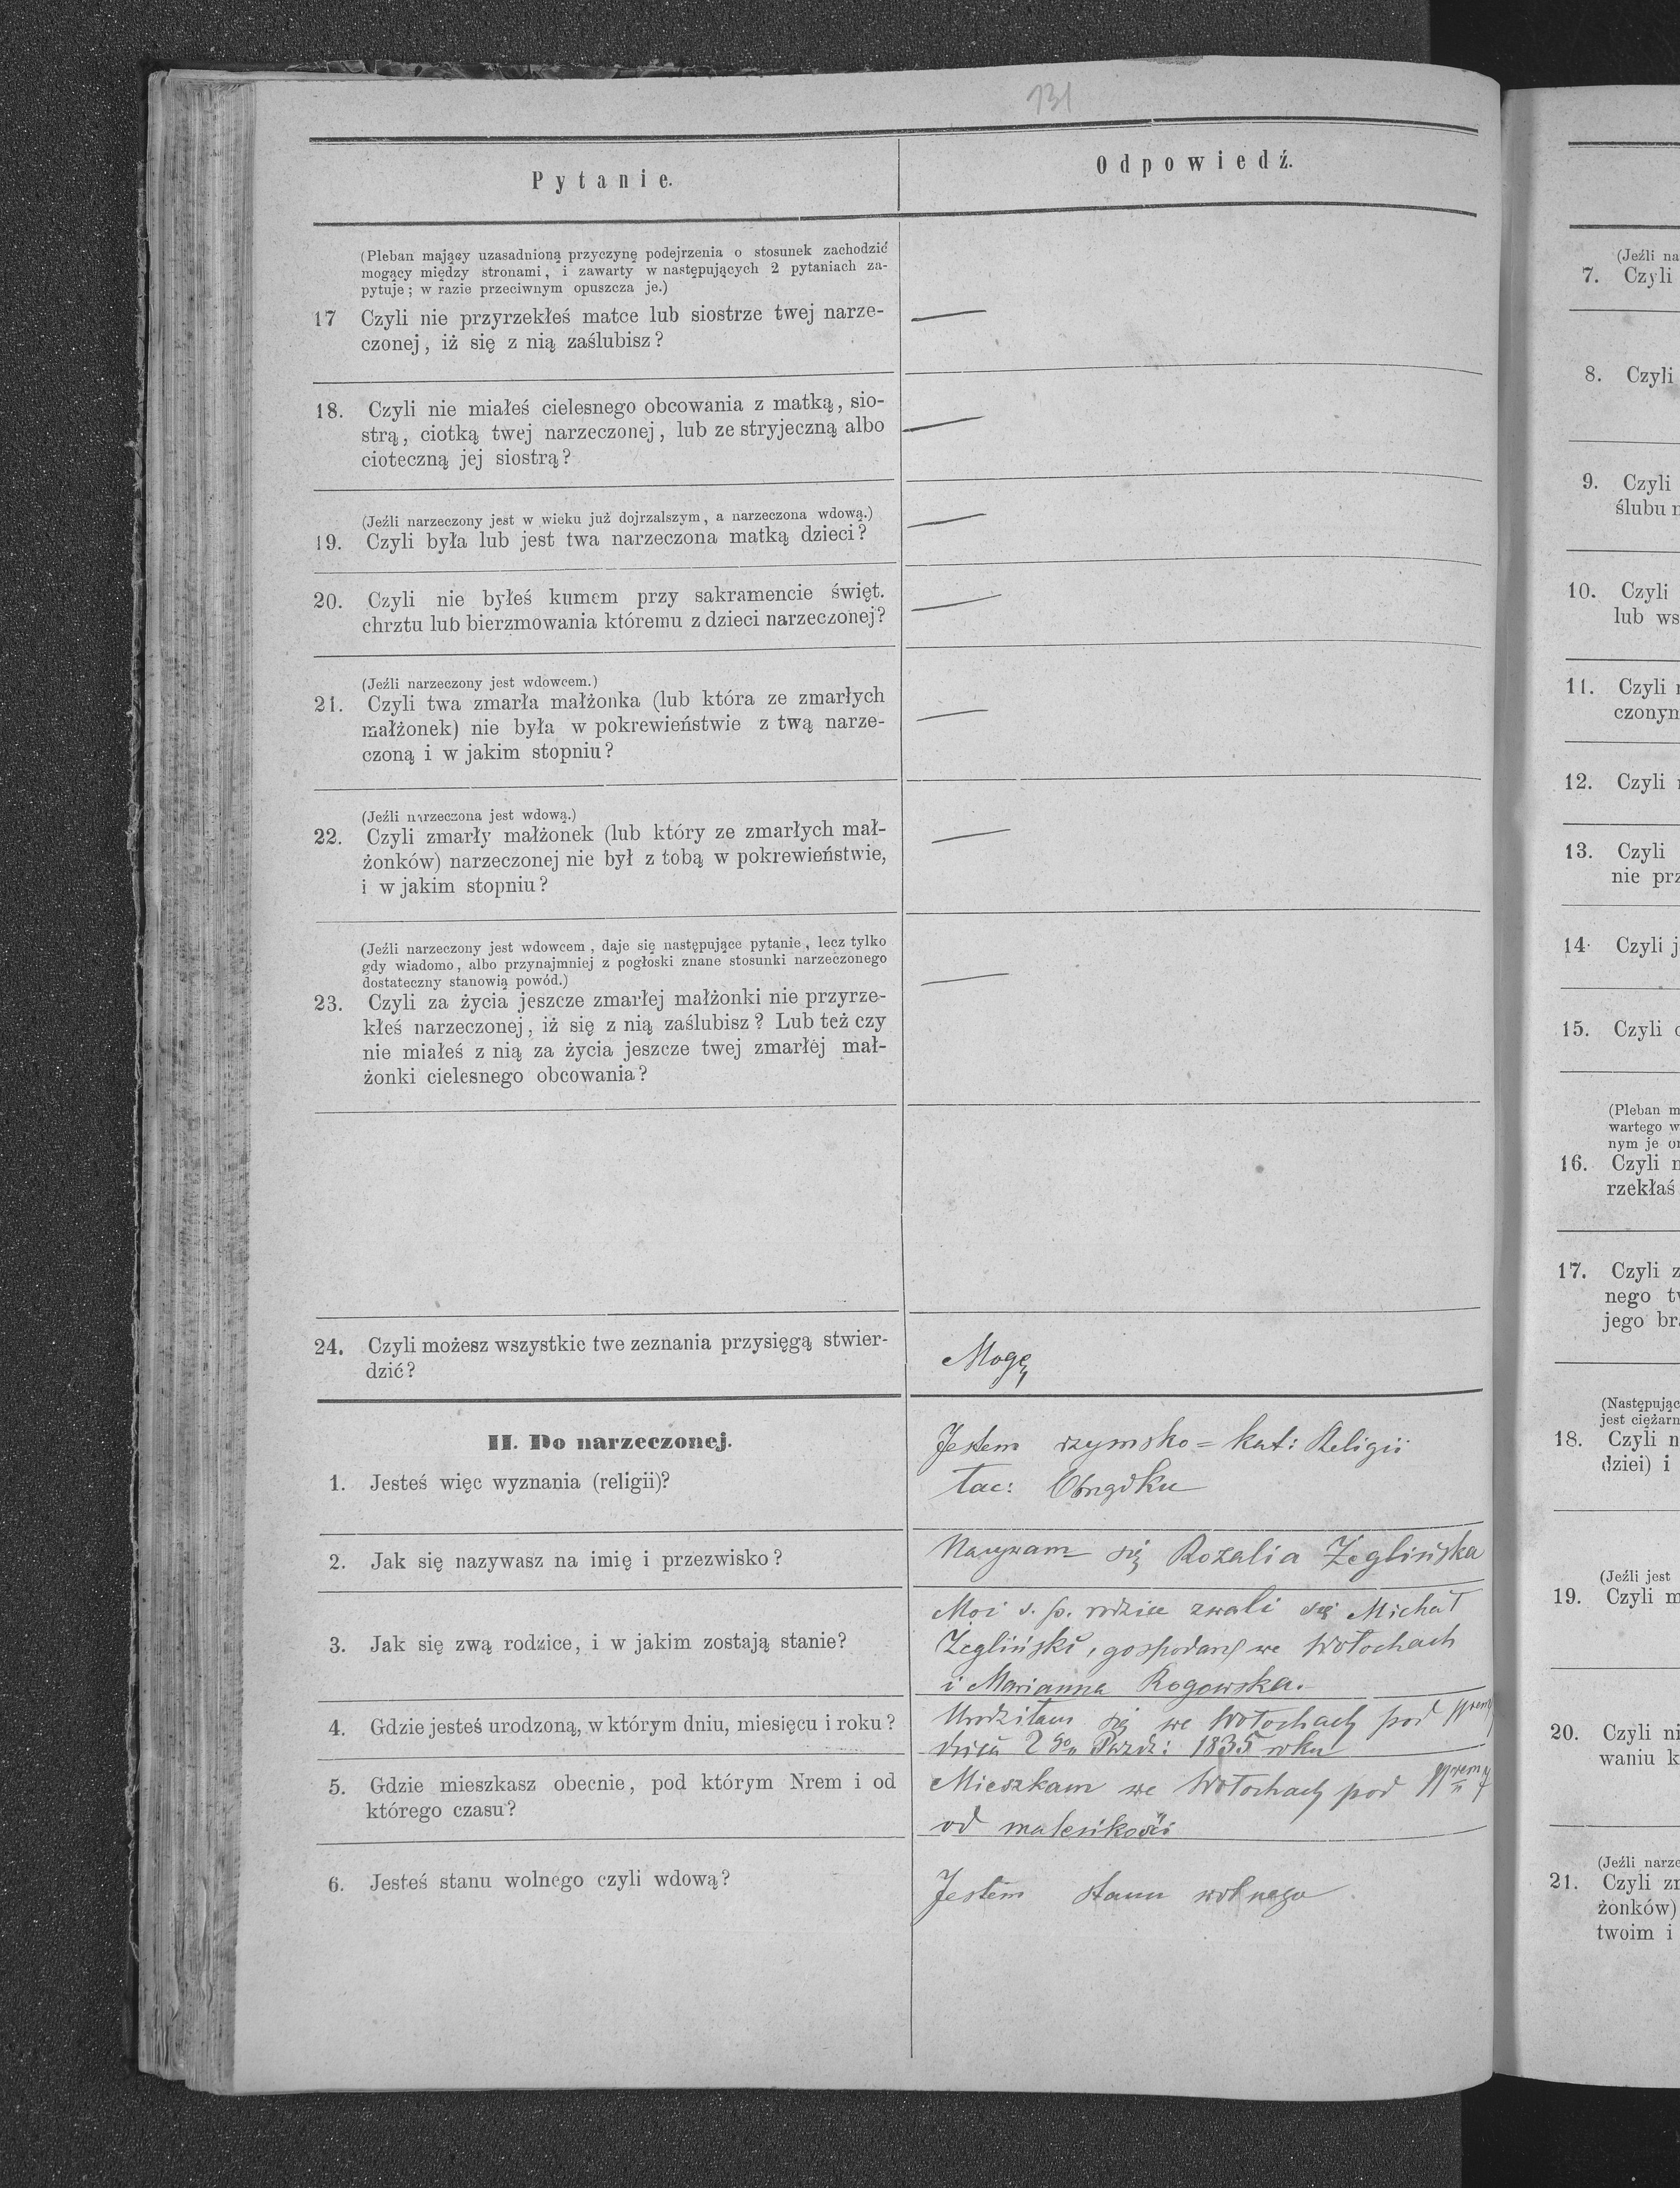 131
Pytanie.
Odpowiedź.
(Pleban mający uzasadnioną przyczynę podejrzenia o stosunek zachodzić
mogący między stronami, i zawarty w następujących 2 pytaniach za-
pytuje; w razie przeciwnym opuszcza je.)
17 Czyli nie przyrzekłeś matce lub siostrze twej narze-
czonej, iż się z nią zaślubisz?
—
18. Czyli nie miałeś cielesnego obcowania z matką, sio-
strą, ciotką twej narzeczonej, lub ze stryjeczną albo
cioteczną jej siostrą?
—
(Jeźli narzeczony jest w wieku już dojrzalszym, a narzeczona wdową.)
19. Czyli była lub jest twa narzeczona matką dzieci?
—
20. Czyli nie byłeś kumem przy sakramencie święt.
chrztu lub bierzmowania któremu z dzieci narzeczonej?
—
(Jeźli narzeczony jest wdowcem.)
21. Czyli twa zmarła małżonka (lub która ze zmarłych
małżonek) nie była w pokrewieństwie z twą narze-
czoną i w jakim stopniu?
—
(Jeźli narzeczona jest wdową.)
22. Czyli zmarły małżonek (lub który ze zmarłych mał-
żonków) narzeczonej nie był z tobą w pokrewieństwie,
i w jakim stopniu?
—
(Jeźli narzeczony jest wdowcem, daje się następujące pytanie, lecz tylko
gdy wiadomo, albo przynajmniej z pogłoski znane stosunki narzeczonego
dostateczny stanowią powód.)
23. Czyli za życia jeszcze zmarłej małżonki nie przyrze-
kłeś narzeczonej, iż się z nią zaślubisz? Lub też czy
nie miałeś z nią za życia jeszcze twej zmarłéj mał-
żonki cielesnego obcowania?
—
24. Czyli możesz wszystkie twe zeznania przysięgą stwier-
dzić?
Mogę
II. Do narzeczonej.
1. Jesteś więc wyznania (religii)?
Jestem rzymsko=kat: Religii
łac: Obrządku
2. Jak się nazywasz na imię i przezwisko?
Nazywam się Rozalia Żeglińska
3. Jak się zwą rodzice, i w jakim zostają stanie?
Moi ś. p. rodzice zwali się Michał
Żegliński, gospodarz we Wołochach
i Marianna Rogowska.
4. Gdzie jesteś urodzoną, w którym dniu, miesięcu i roku?
Urodziłam się we Wołochach pod
dnia 2go Paźdz: 1835 roku
5. Gdzie mieszkasz obecnie, pod którym Nrem i od
którego czasu?
Mieszkam we Wołochach pod
od maleńkości
6. Jesteś stanu wolnego czyli wdową?
Jestem stanu wolnego
(Jeźli na
7. Czyli
8. Czyli
9. Czyli
ślubu
10. Czyli
lub ws
11. Czyli
czonym
12. Czyli
13. Czyli
nie prz
14. Czyli j
15. Czyli
(Pleban m
wartego w
nym je
16. Czyli
rzekłaś
17. Czyli z
nego
jego
(Następując
jest ciężarn
18. Czyli n
dziei) i
(Jeźli jest
19. Czyli m
20. Czyli ni
waniu k
(Jeźli narze
21. Czyli
żonków)
twoim i